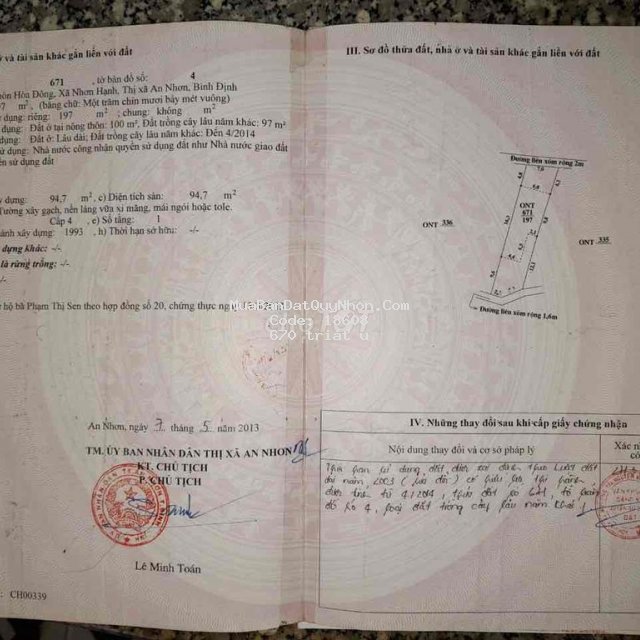 ở và tài sản khác gắn liền với đất
671 , tờ bản đồ số: 4
Hòa Đông, Xã Nhơn Hạnh, Thị xã An Nhơn, Bình Định
m², (bằng chữ: Một trăm chín mươi bảy mét vuông)
dụng: riêng: 197 m² ; chung: không m²
dụng: Đất ở tại nông thôn: 100 m², Đất trồng cây lâu năm khác: 97 m²
dụng: Đất ở: Lâu dài; Đất trồng cây lâu năm khác: Đến 4/2014
dụng: Nhà nước công nhận quyền sử dụng đất như Nhà nước giao đất
sử dụng đất
dựng: 94,7 m², c) Diện tích sàn: 94,7 m²
Tường xây gạch, nền láng vữa xi măng, mái ngói hoặc tole.
Cấp 4 , e) Số tầng: 1
thành xây dựng: 1993 , h) Thời hạn sở hữu: -/-
dựng khác: -/-
là rừng trồng: -/-
-/-
hộ bà Phạm Thị Sen theo hợp đồng số 20, chứng thực
MuaBanDatQuyNhon.Com
Code: 18608
670 triệu
An Nhơn, ngày 7 tháng 5 năm 2013
TM. ỦY BAN NHÂN DÂN THỊ XÃ AN NHƠN
KT. CHỦ TỊCH
P. CHỦ TỊCH
Lê Minh Toán
CH00339
III. Sơ đồ thửa đất, nhà ở và tài sản khác gắn liền với đất
Đường liên xóm rộng 2m
ONT
671
197
ONT 336
ONT 335
Đường liên xóm rộng 1,6m
IV. Những thay đổi sau khi cấp giấy chứng nhận
Nội dung thay đổi và cơ sở pháp lý
Xác
Thời hạn sử dụng đất được xác định theo Luật đất
đai năm 2003
4, loại đất trồng cây lâu năm khác